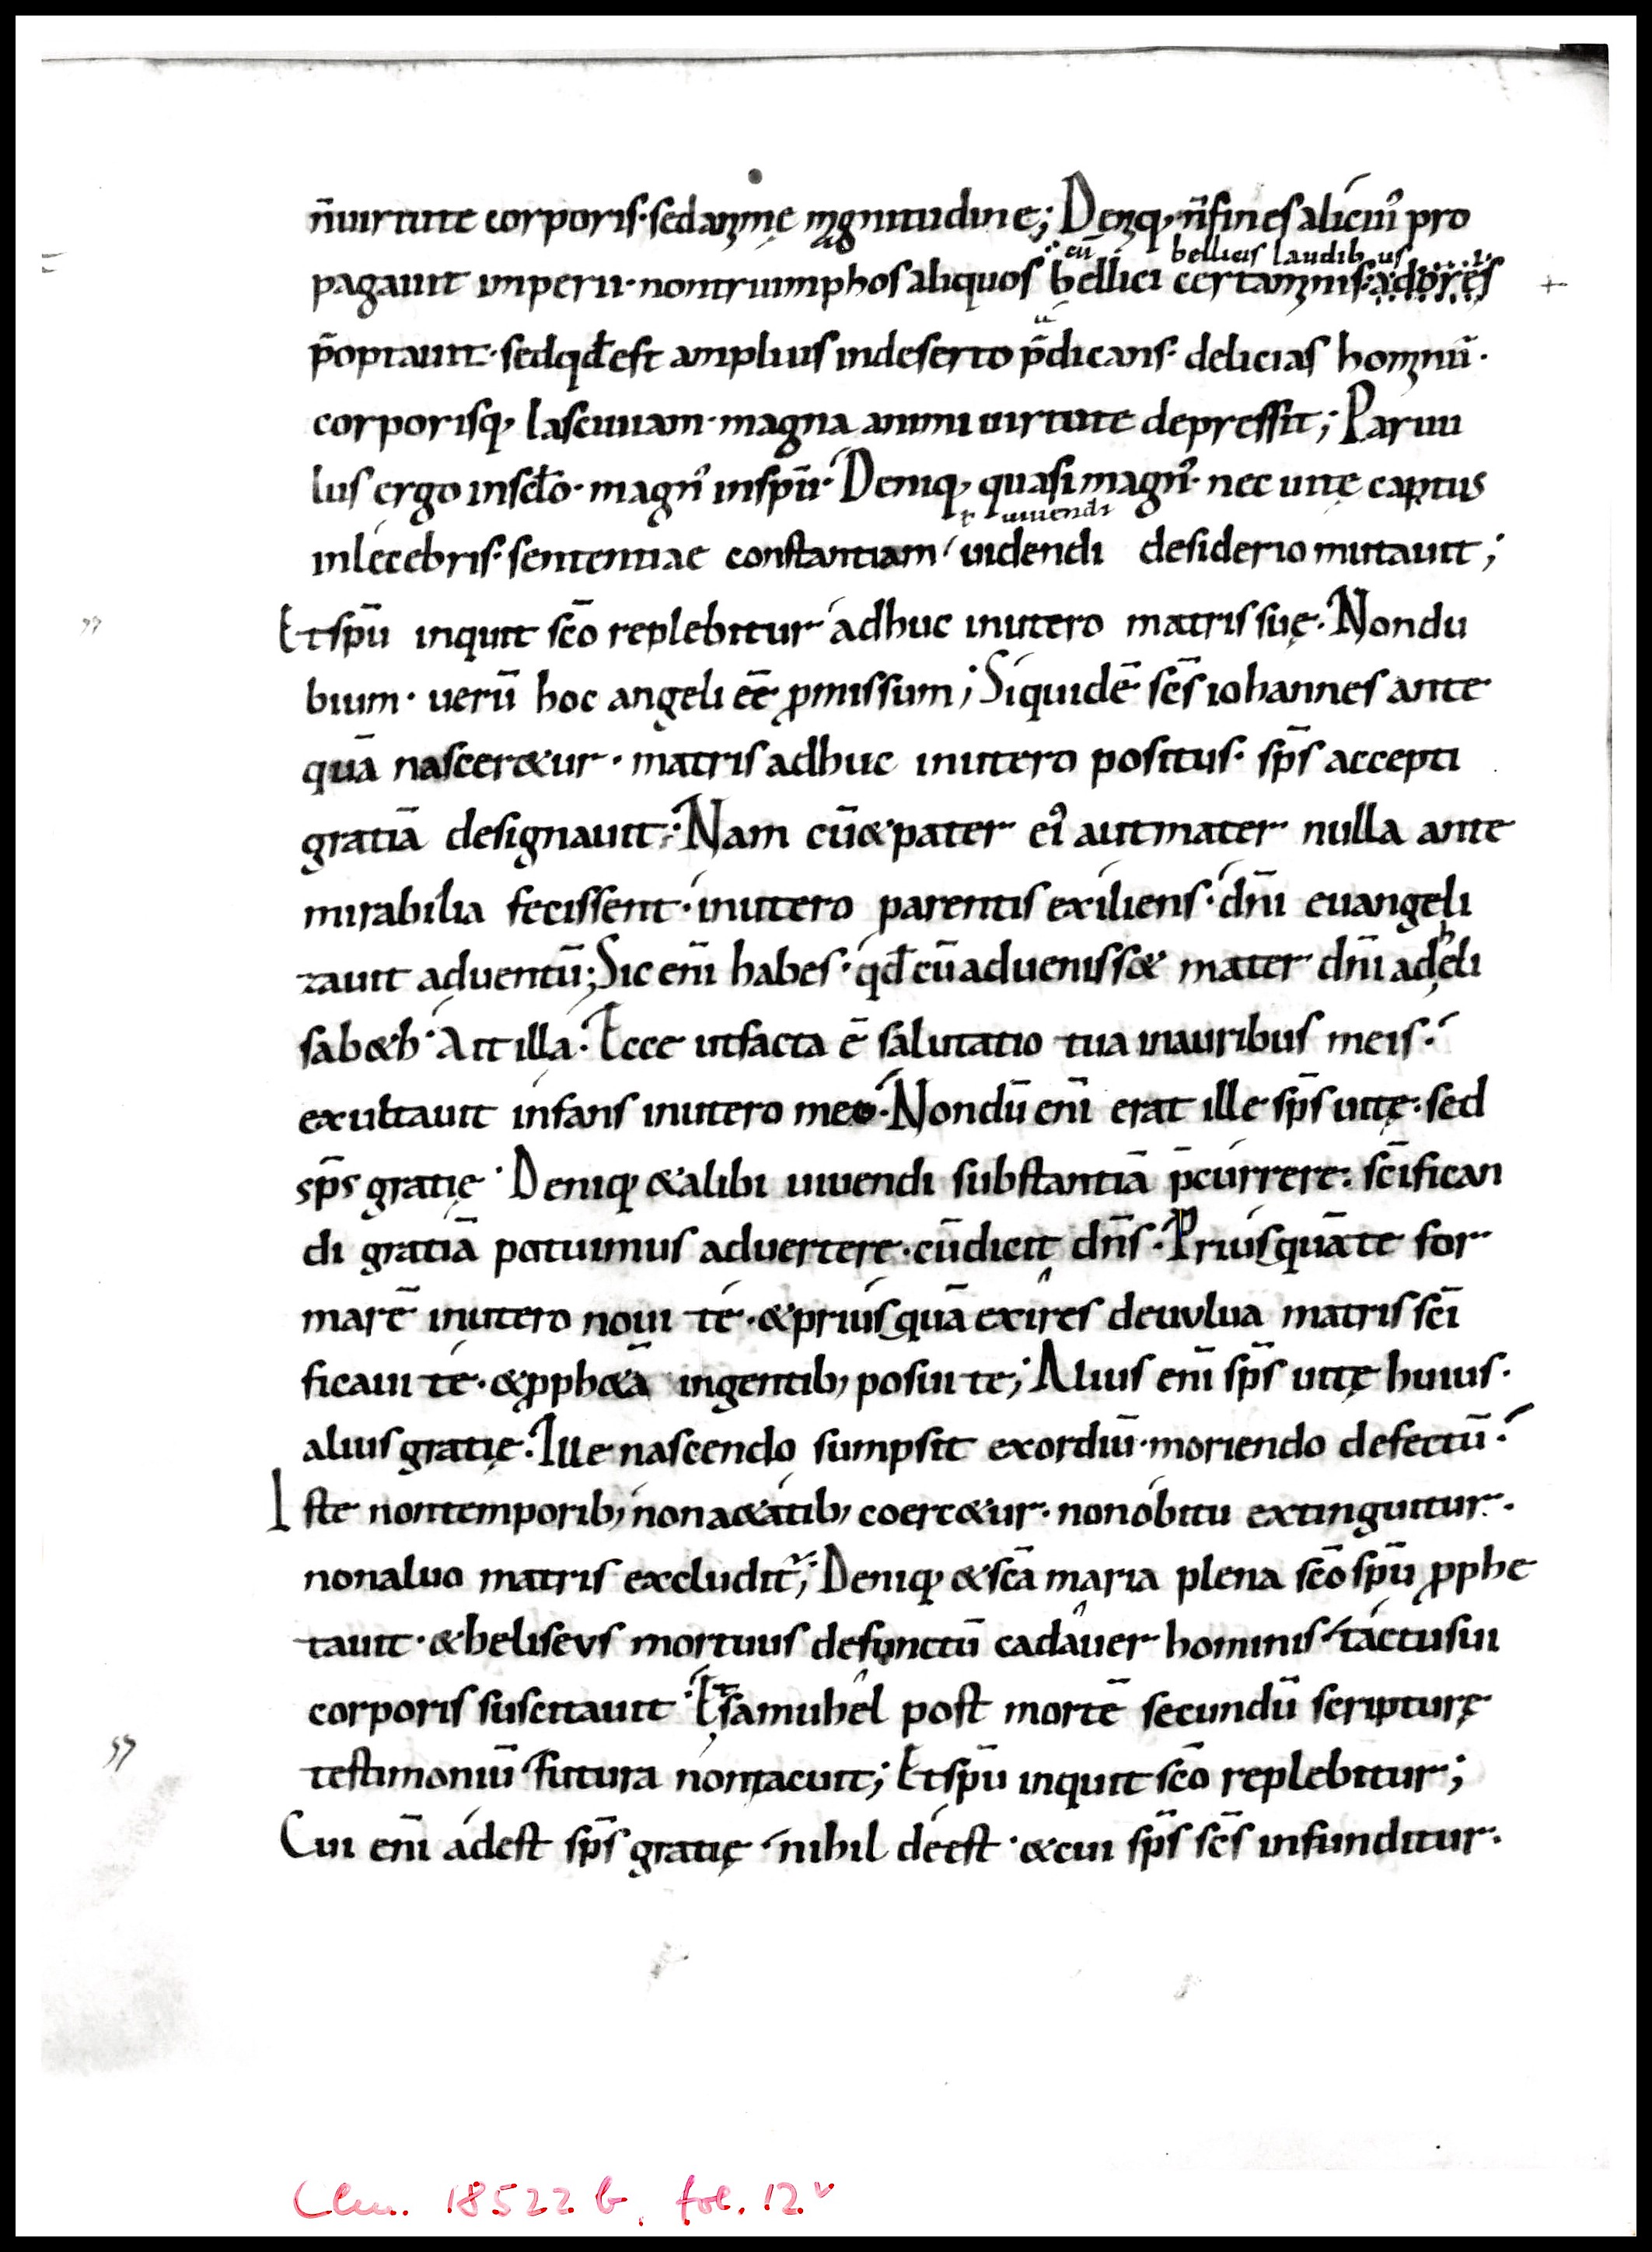 n̄ uirtute corporis· sed animę magnitudine; Deniq; n̄ fines alicuiꝰ pro
eū bellicis laudibus
pagauit imperii· non triumphos aliquos bellici certaminis· adores
p̄optauit· sed qđ est amplius in deserto p̄dicans· delicias hominū·
corporisq; lasciuiam· magna animi uirtute depressit; Paruu
lus ergo in sc̄lo· magnꝰ in sp̄u· Deniq; quasi magnꝰ· nec uitę captus
ł uiuendi
inlecebris· sententiae constantiam uidendi desiderio mutauit;
Et sp̄u inquit sc̄o replebitur adhuc in utero matris suę· Non du
bium· uerū hoc angeli eē ꝓmissum; Siquidē sc̄s iohannes ante
quā nascer&ur· matris adhuc in utero positus· sp̄s accepti
gratiā designauit· Nam cū & pater eiꝰ aut mater nulla ante
mirabilia fecissent· in utero parentis exiliens· dn̄i euangeli
zauit aduentū; Sic eni̅ habes· qđ cū adueniss& mater dn̄i ad heli
sab&h· Ait illa· Ecce ut facta ē salutatio tua in auribus meis·
exultauit infans in utero meo· Nondū eni̅ erat ille sp̄s uitę· sed
sp̄s gratię· Deniq; & alibi uiuendi substantiā p̄currere· sc̄ifican
di gratiā potuimus aduertere· cū dicit dn̄s· Priusquā te for
marē in utero noui te· & priusquā exires de uulua matris sc̄i
ficaui te· & ꝓph&ā in gentib; posui te; Alius eni̅ sp̄s uitę huius·
alius gratię· Ille nascendo sumpsit exordiū· moriendo defectū·
Iste non temporib; non a&atib; coerc&ur· non obitu extinguitur·
non aluo matris excluditur; Deniq; & sc̄a maria plena sc̄o sp̄u ꝓphe
tauit· & heliseus mortuus defunctū cadauer hominis tactu sui
corporis suscitauit· Et samuhel post mortē secundū scripturę
testimoniū futura non tacuit; Et sp̄u inquit sc̄o replebitur;
Cui eni̅ adest sp̄s gratię nihil deest· & cui sp̄s sc̄s infunditur·
Clm. 18522 b, fol. 12v